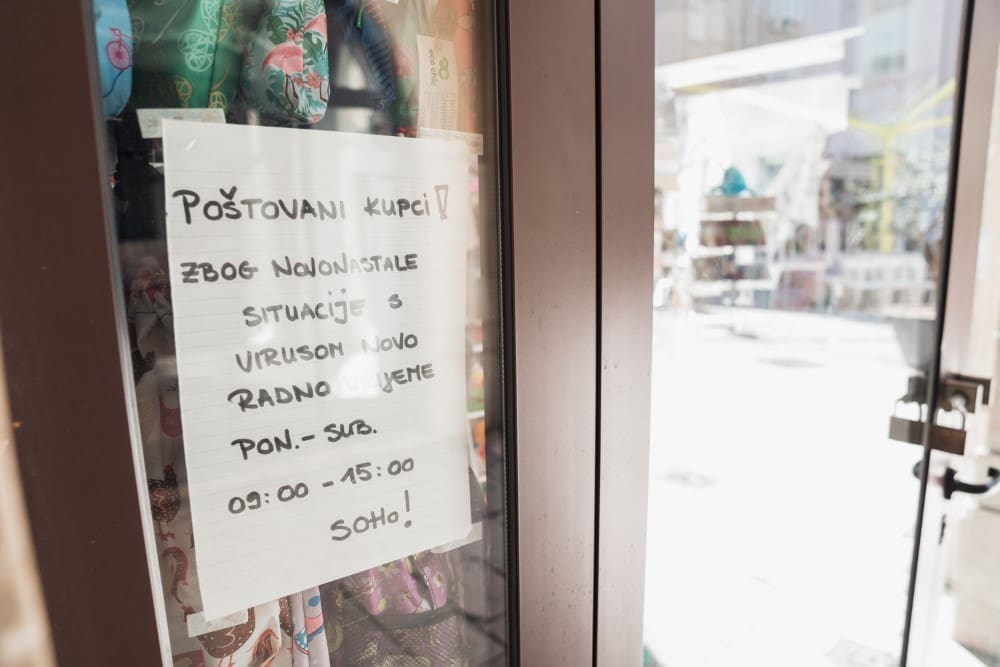 POŠTOVANI KUPCI!
ZBOG NOVONASTALE
SITUACIJE S
VIRUSOM NOVO
RADNO VRIJEME
PON.- SUB.
09:00 - 15:00
SOHO!
eco chic